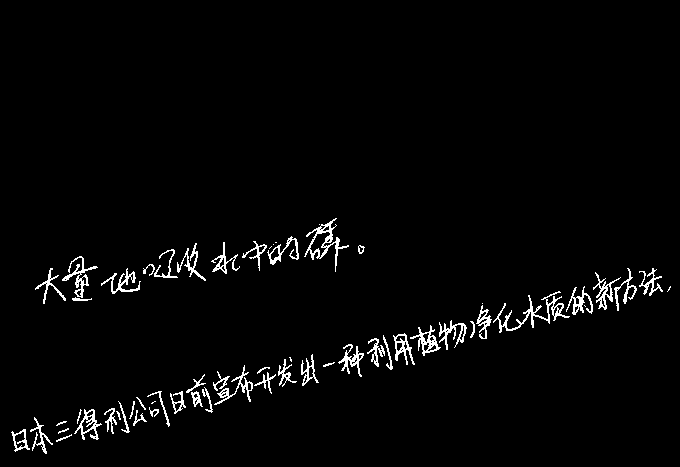 大量地吸收水中的磷。
日本三得利公司日前宣布开发出一种利用植物净化水质的新方法,